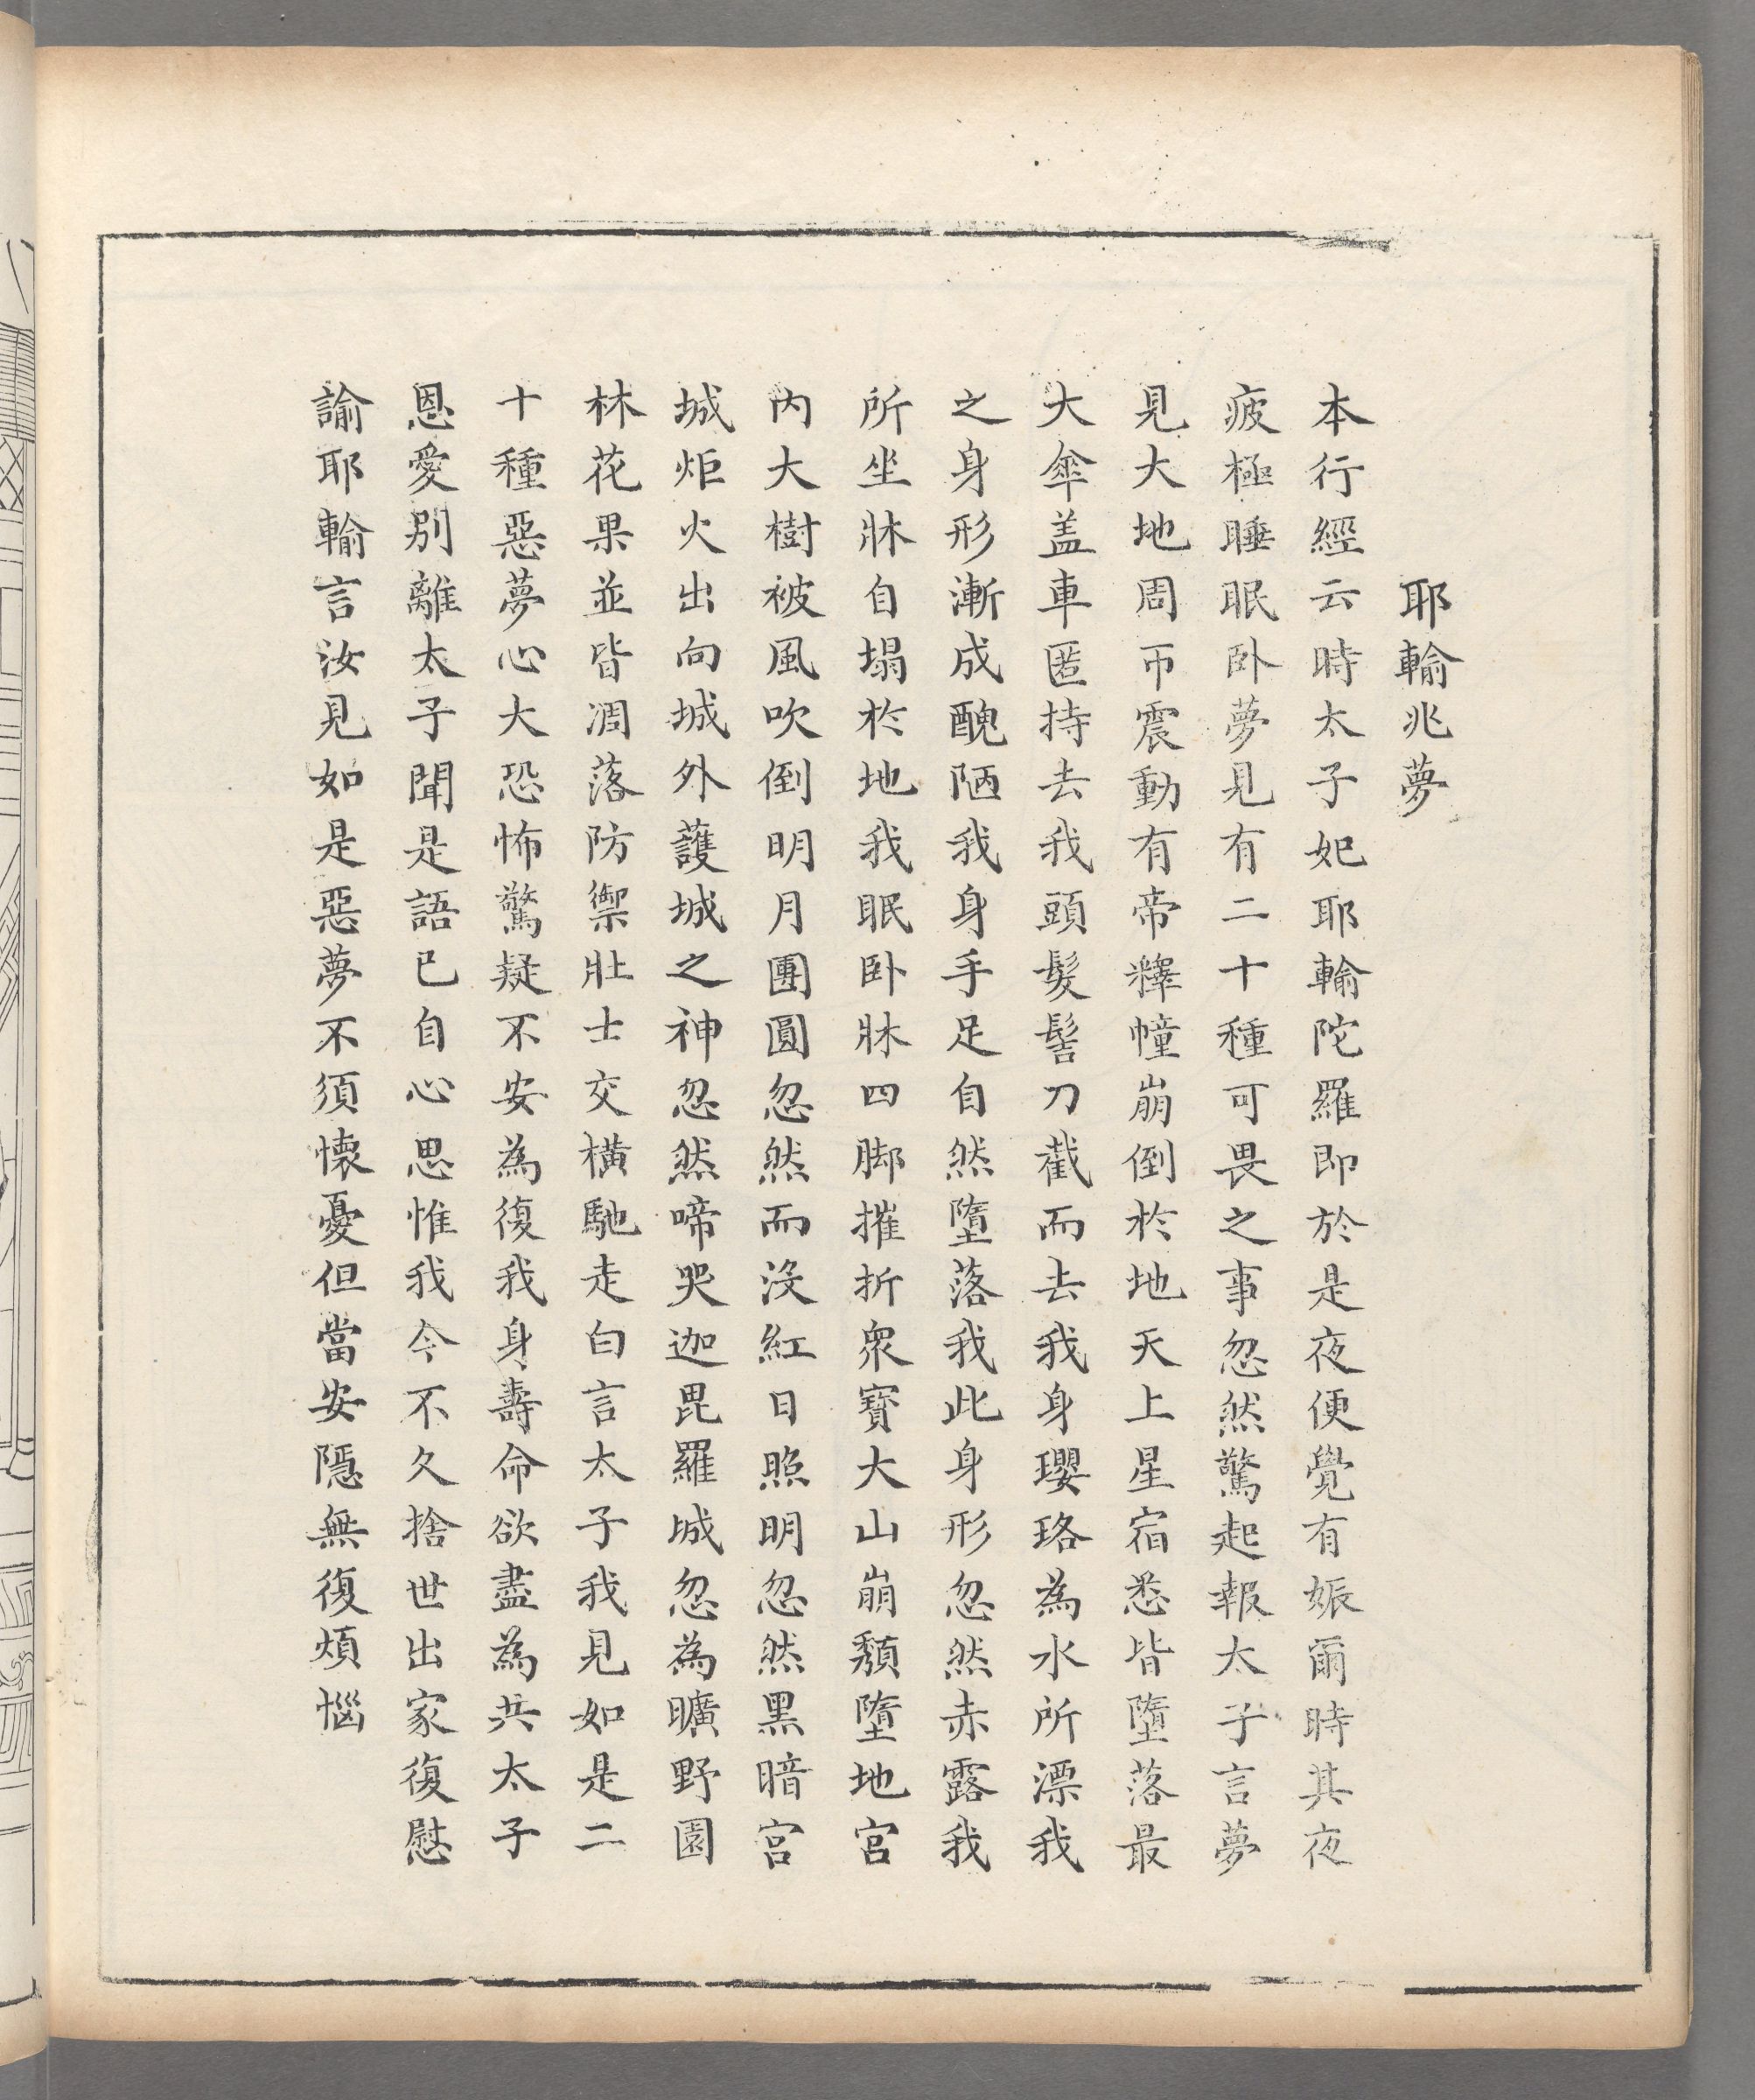 耶輸兆夢
本行經云時太子妃耶輸陀羅即於是夜便覺有娠爾時其夜
疲極睡眠卧夢見有二十種可畏之事忽然驚起報太子言夢
見大地周帀震動有帝釋幢崩倒於地天上星宿悉皆墮落最
大傘盖車匿持去我頭髮髻刀截而去我身瓔珞為水所漂我
之身形漸成醜陋我身手足自然墮落我此身形忽然赤露我
所坐牀自塌於地我眠卧牀四脚摧折衆寶大山崩頽墮地宮
内大樹被風吹倒明月團圓忽然而沒紅日照明忽然黑暗宮
城炬火出向城外護城之神忽然啼哭迦毘羅城忽為曠野園
林花果並皆凋落防禦壯士交橫馳走白言太子我見如是二
十種惡夢心大恐怖驚疑不安為復我身壽命欲盡為共太子
恩愛別離太子聞是語已自心思惟我今不久捨世出家復慰
諭耶輸言汝見如是惡夢不須懷憂但當安隱無復煩惱